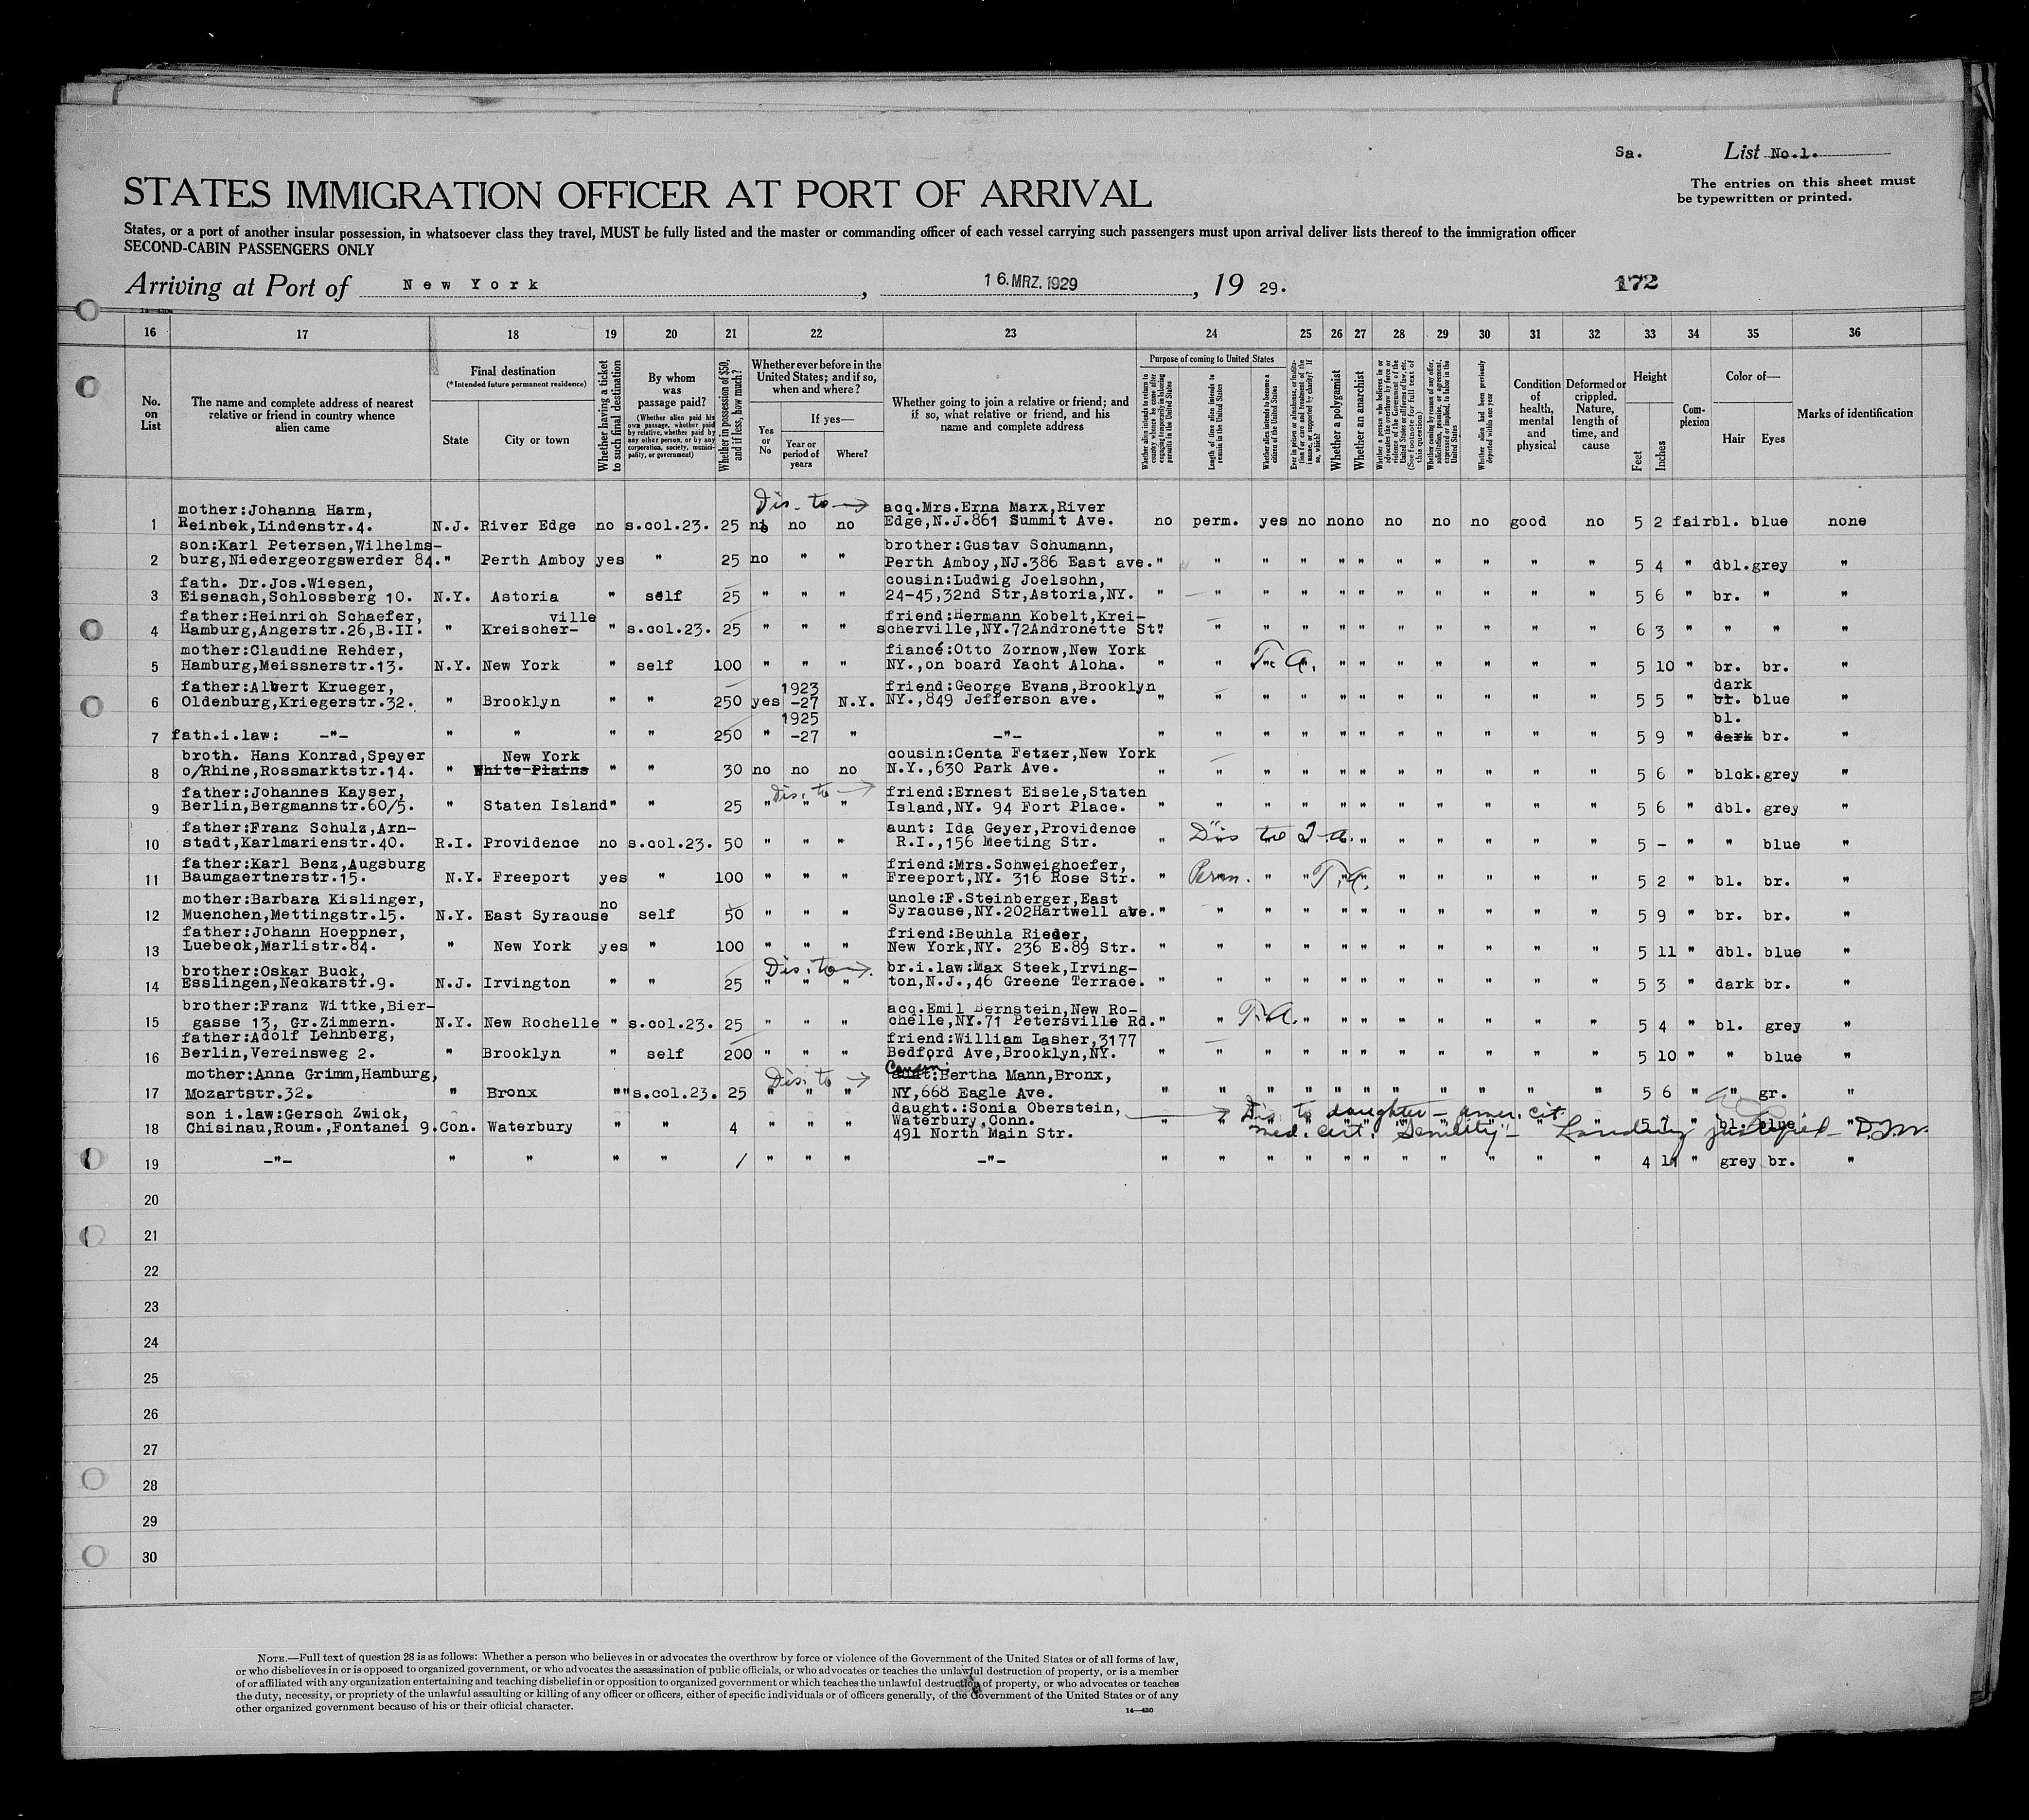 Sa. List No.1.
STATES IMMIGRATION OFFICER AT PORT OF ARRIVAL
The entries on this sheet must
be typewritten or printed.
States, or a port of another insular possession, in whatsoever class they travel, MUST be fully listed and the master or commanding officer of each vessel carrying such passengers must upon arrival deliver lists thereof to the immigration officer
SECOND-CABIN PASSENGERS ONLY
Arriving at Port of New York, 16.MRZ.1929, 19 29. 172
16 17 18 19 20 21 22 23 24 25 26 27 28 29 30 31 32 33 34 35 36
No. on List
The name and complete address of nearest relative or friend in country whence alien came
Final destination
(*Intended future permanent residence)
State
City or town
Whether having a ticket to such final destination
By whom was passage paid?
(Whether alien paid his own passage, whether paid by relative, whether paid by any other person, or by any corporation, society, municipality, or government)
Whether in possession of $50, and if less, how much?
Whether ever before in the United States; and if so, when and where?
Yes or No
If yes—
Year or period of years
Where?
Whether going to join a relative or friend; and if so, what relative or friend, and his name and complete address
Purpose of coming to United States
Whether alien intends to return to country whence he came after engaging temporarily in laboring pursuits in the United States
Length of time alien intends to remain in the United States
Whether alien intends to become a citizen of the United States
Ever in prison or almshouse, or institution for care and treatment of the insane, or supported by charity? If so, which?
Whether a polygamist
Whether an anarchist
Whether a person who believes in or advocates the overthrow by force or violence of the Government of the United States or all forms of law, etc. (See footnote for full text of this question)
Whether coming by reason of any offer, solicitation, promise, or agreement, expressed or implied, to labor in the United States
Whether alien had been previously deported within one year
Condition of health, mental and physical
Deformed or crippled. Nature, length of time, and cause
Height
Feet
Inches
Complexion
Color of—
Hair
Eyes
Marks of identification
Dis. to →
mother:Johanna Harm, acq.Mrs.Erna Marx,River
1 Reinbek,Lindenstr.4. N.J. River Edge no s.col.23. 25 no no no Edge,N.J.861 Summit Ave. no perm. yes no no no no no no good no 5 2 fair bl. blue none
son:Karl Petersen,Wilhelms- brother:Gustav Schumann,
2 burg,Niedergeorgswerder 84. " Perth Amboy yes " 25 no " " Perth Amboy,NJ.386 East ave. " " " " " " " " " " " 5 4 " dbl. grey "
fath. Dr.Jos.Wiesen, cousin:Ludwig Joelsohn,
3 Eisenach,Schlossberg 10. N.Y. Astoria " self 25 " " " 24-45,32nd Str,Astoria,NY. " " " " " " " " " " " 5 6 " br. " "
father:Heinrich Schaefer, ville friend:Hermann Kobelt,Krei-
4 Hamburg,Angerstr.26,B.II. " Kreischer- " s.col.23. 25 " " " scherville,NY.72Andronette St. " " " " " " " " " " " 6 3 " " " "
mother:Claudine Rehder, fiancé:Otto Zornow,New York
5 Hamburg,Meissnerstr.13. N.Y. New York " self 100 " " " NY.,on board Yacht Aloha. " " T. A. " " " " " " " " 5 10 " br. br. "
father:Albert Krueger, 1923 friend:George Evans,Brooklyn dark
6 Oldenburg,Kriegerstr.32. " Brooklyn " " 250 yes -27 N.Y. NY.,849 Jefferson ave. " " " " " " " " " " " 5 5 " br. blue "
1925 bl.
7 fath.i.law: -"- " " " " 250 " -27 " -"- " " " " " " " " " " " 5 9 " dark br. "
broth. Hans Konrad,Speyer New York cousin:Centa Fetzer,New York
8 o/Rhine,Rossmarktstr.14. " White-Plains " " 30 no no no N.Y.,630 Park Ave. " " " " " " " " " " " 5 6 " blck. grey "
father:Johannes Kayser, Dis. to → friend:Ernest Eisele,Staten
9 Berlin,Bergmannstr.60/5. " Staten Island " " 25 " " " Island,NY. 94 Fort Place. " " " " " " " " " " " 5 6 " dbl. grey "
father:Franz Schulz,Arn- aunt: Ida Geyer,Providence
10 stadt,Karlmarienstr.40. R.I. Providence no s.col.23. 50 " " " R.I.,156 Meeting Str. " Dis to T.A. " " " " " " 5 - " " blue "
father:Karl Benz,Augsburg friend:Mrs.Schweighoefer,
11 Baumgaertnerstr.15. N.Y. Freeport yes " 100 " " " Freeport,NY. 316 Rose Str. " Perm. " " T.A. " " " " " 5 2 " bl. br. "
mother:Barbara Kislinger, no uncle:F.Steinberger,East
12 Muenchen,Mettingstr.15. N.Y. East Syracuse self 50 " " " Syracuse,NY.202Hartwell ave. " " " " " " " " " " " 5 9 " br. br. "
father:Johann Hoeppner, friend:Beuhla Rieder,
13 Luebeck,Marlistr.84. " New York yes " 100 " " " New York,NY. 236 E.89 Str. " " " " " " " " " " " 5 11 " dbl. blue "
brother:Oskar Buck, Dis. to → br.i.law:Max Steek,Irving-
14 Esslingen,Neckarstr.9. N.J. Irvington " " 25 " " " ton,N.J.,46 Greene Terrace. " " " " " " " " " " " 5 3 " dark br. "
brother:Franz Wittke,Bier- acq.Emil Bernstein,New Ro-
15 gasse 13, Gr.Zimmern. N.Y. New Rochelle " s.col.23. 25 " " " chelle,NY.71 Petersville Rd. " " T.A. " " " " " " " " 5 4 " bl. grey "
father:Adolf Lehnberg, friend:William Lasher,3177
16 Berlin,Vereinsweg 2. " Brooklyn " self 200 " " " Bedford Ave,Brooklyn,NY. " " " " " " " " " " " 5 10 " " blue "
mother:Anna Grimm,Hamburg, Dis. to → Cousin: aunt:Bertha Mann,Bronx,
17 Mozartstr.32. " Bronx " " s.col.23. 25 " " " NY,668 Eagle Ave. " " " " " " " " " " " 5 6 " " gr. "
son i.law:Gersch Zwick, daught.:Sonia Oberstein, → Dis. to daughter - amer. cit.
18 Chisinau,Roum.,Fontanei 9. Con. Waterbury " " 4 " " " Waterbury,Conn. " " med. cert. "Senility" - Landing justified - D.M. 5 7 " bl. blue "
491 North Main Str.
19 -"- " " " " 1 " " " -"- " " " " " " " " " " " 4 11 " grey br. "
20
21
22
23
24
25
26
27
28
29
30
NOTE.—Full text of question 28 is as follows: Whether a person who believes in or advocates the overthrow by force or violence of the Government of the United States or of all forms of law,
or who disbelieves in or is opposed to organized government, or who advocates the assassination of public officials, or who advocates or teaches the unlawful destruction of property, or is a member
of or affiliated with any organization entertaining and teaching disbelief in or opposition to organized government or which teaches the unlawful destruction of property, or who advocates or teaches
the duty, necessity, or propriety of the unlawful assaulting or killing of any officer or officers, either of specific individuals or of officers generally, of the Government of the United States or of any
other organized government because of his or their official character.
14—430